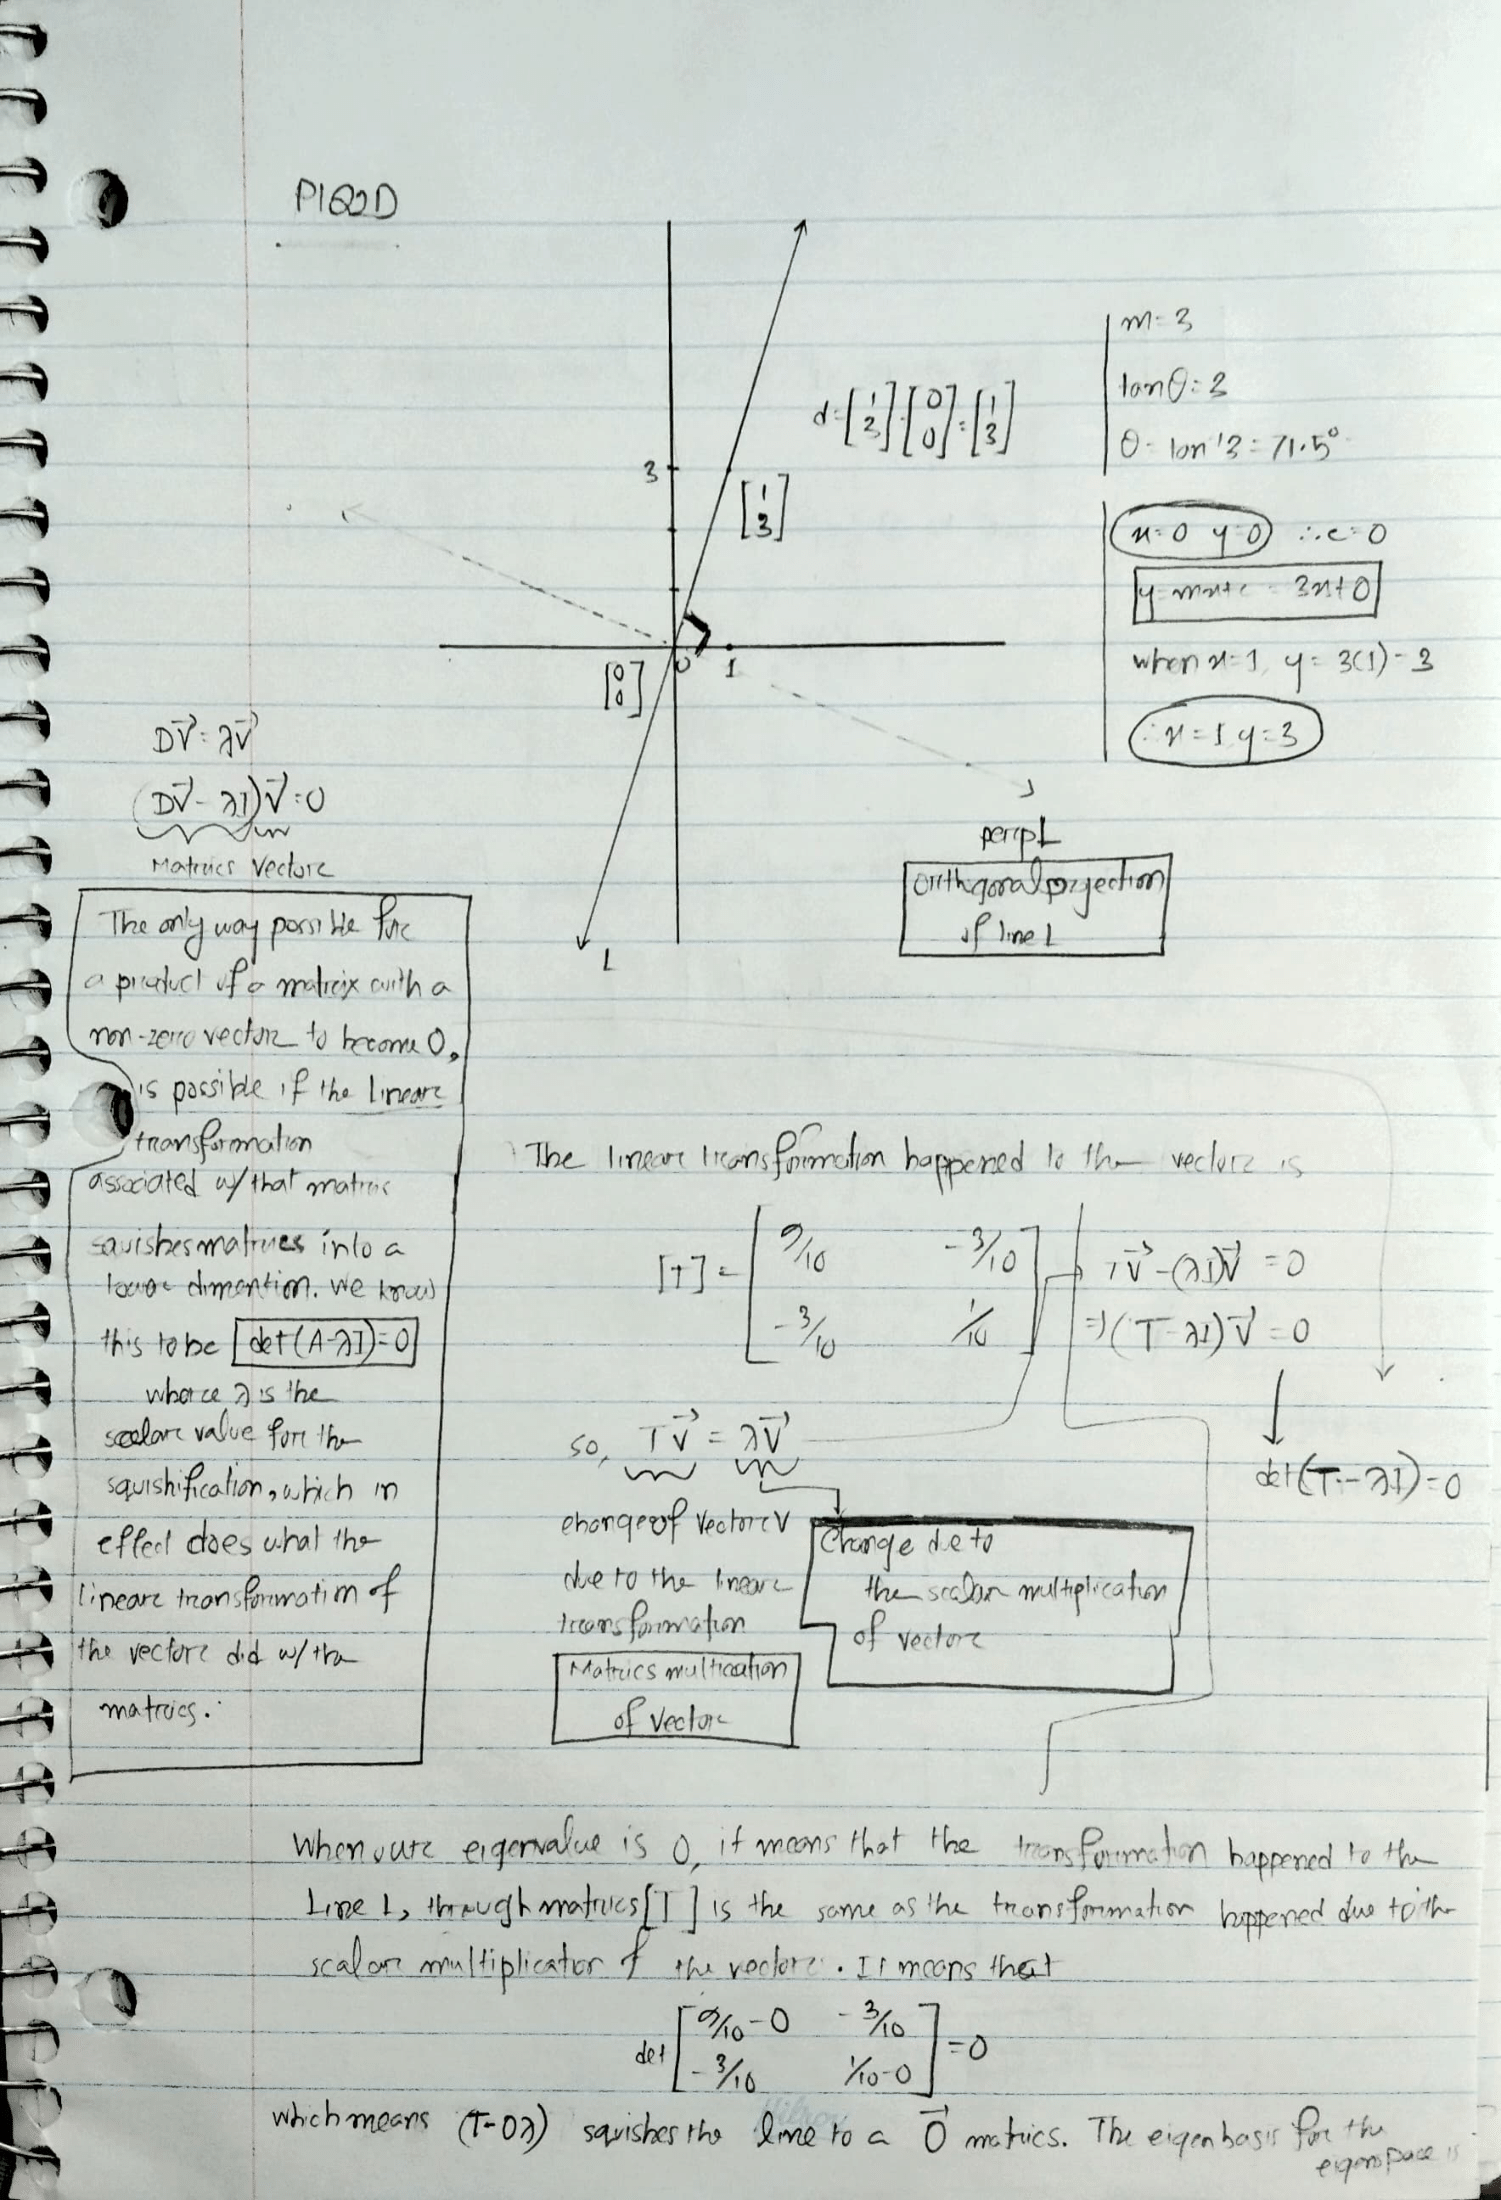 P1Q2D
m=3
tanθ=3
θ=tan⁻¹3=71.5°
d=[1 3]-[0 0]=[1 3]
3
[1 3]
x=0 y=0 ∴c=0
y=mx+c = 3x+0
when x=1, y=3(1)=3
∴x=1 y=3
0 1
[0 0]
L
perpL
Orthogonal projection
of line L
DV⃗=λV⃗
(DV⃗-λI)V⃗=0
Matrics Vector
The only way possible for
a product of a matrix with a
non-zero vector to become 0,
is possible if the linear
transformation
associated w/ that matrix
squishes matrices into a
lower dimention. We know
this to be det(A-λI)=0
where λ is the
scalar value for the
squishification, which in
effect does what the
linear transformation of
the vector did w/ the
matrics.
The linear transformation happened to the vector is
[T]=[9/10 -3/10
-3/10 1/10]
TV⃗-(λI)V⃗=0
⇒(T-λI)V⃗=0
det(T-λI)=0
so, TV⃗=λV⃗
change of vector V
due to the linear
transformation
Matrics multication
of vector
Change due to
the scalar multiplication
of vector
When our eigenvalue is 0, it means that the transformation happened to the
Line L, through matrics [T] is the same as the transformation happened due to the
scalar multiplication of the vector. It means that
det[9/10-0 -3/10
-3/10 1/10-0]=0
which means (T-0λ) squishes the line to a 0⃗ matrics. The eigenbasis for the
eigenspace is
Hilroy